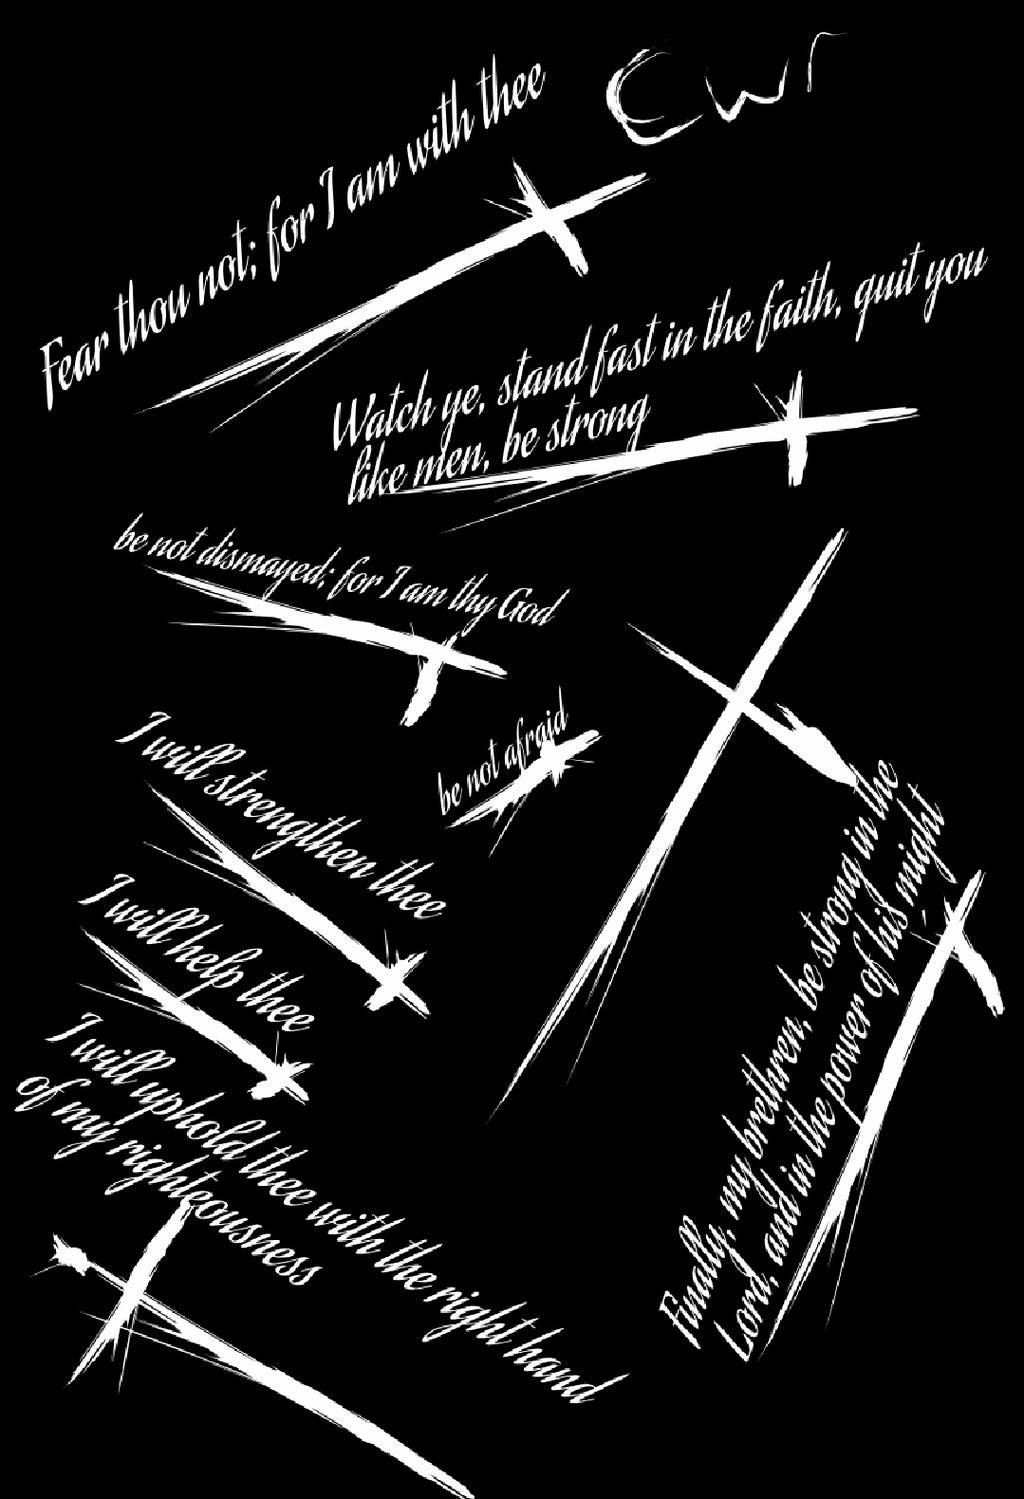 Ewr
Fear thou not; for I am with thee
Watch ye, stand fast in the faith, quit you
like men, be strong
be not dismayed; for I am thy God
be not afraid
I will strengthen thee
I will help thee
I will uphold thee with the right hand
of my righteousness
Finally, my brethren, be strong in the
Lord, and in the power of his might